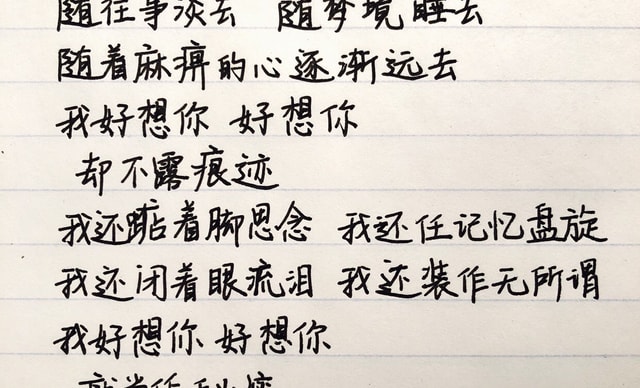 随往事淡去 随梦境睡去
随着麻痹的心逐渐远去
我好想你 好想你
却不露痕迹
我还踮着脚思念 我还任记忆盘旋
我还闭着眼流泪 我还装作无所谓
我好想你 好想你